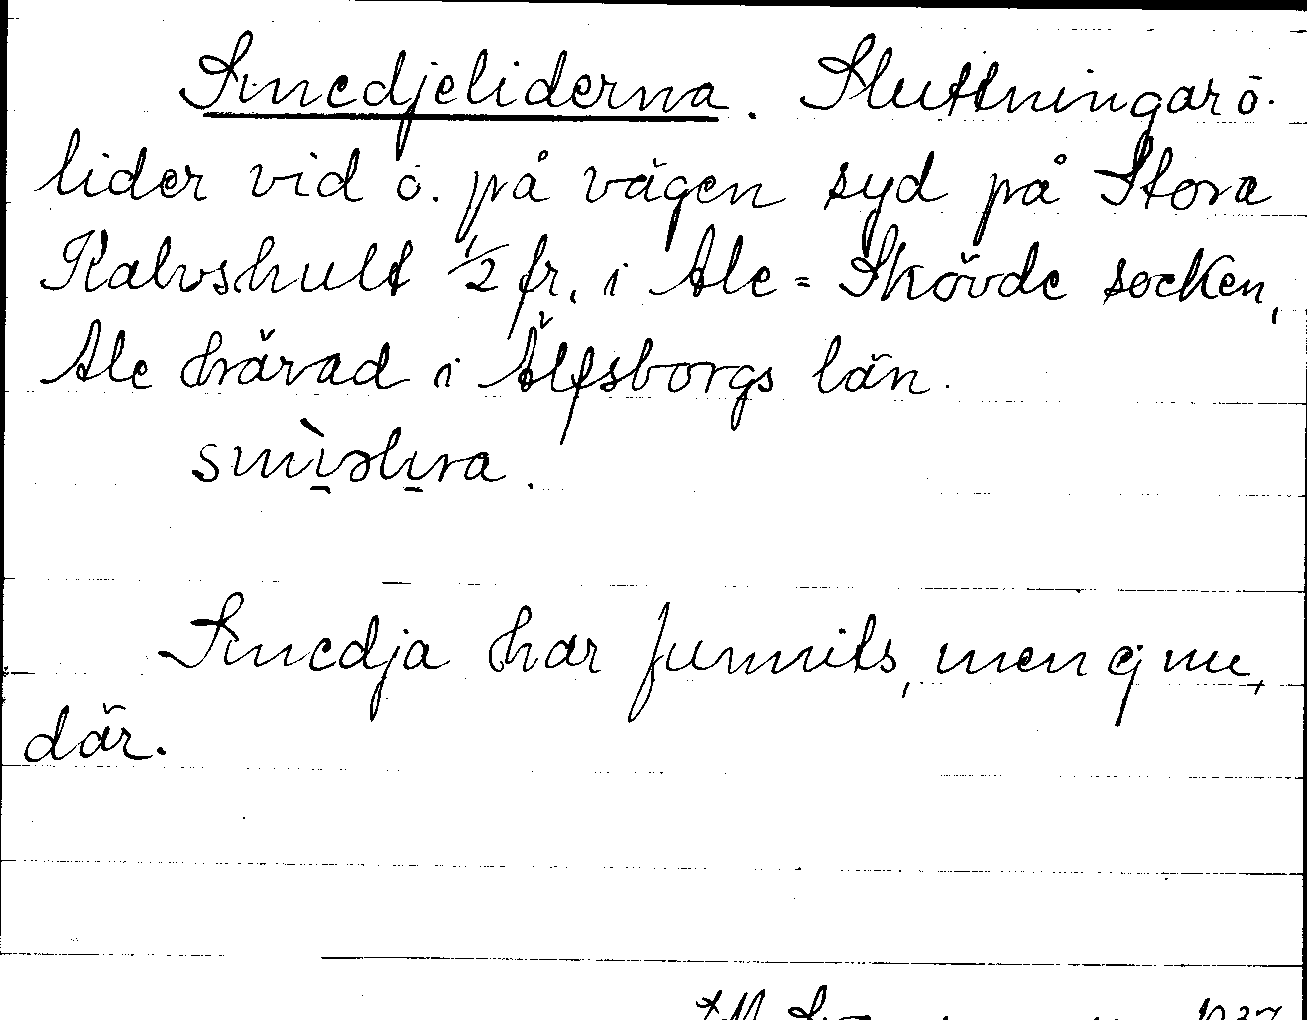 Smedjeliderna. Sluttningar ö.
lider vid o. på vägen syd på Stora
Kalvshult 1/2 fr. i Ale=Skövde socken,
Ale härad i Älfsborgs län.
smìəlıra.
Smedja har funnits, men ej nu,
där.
1937